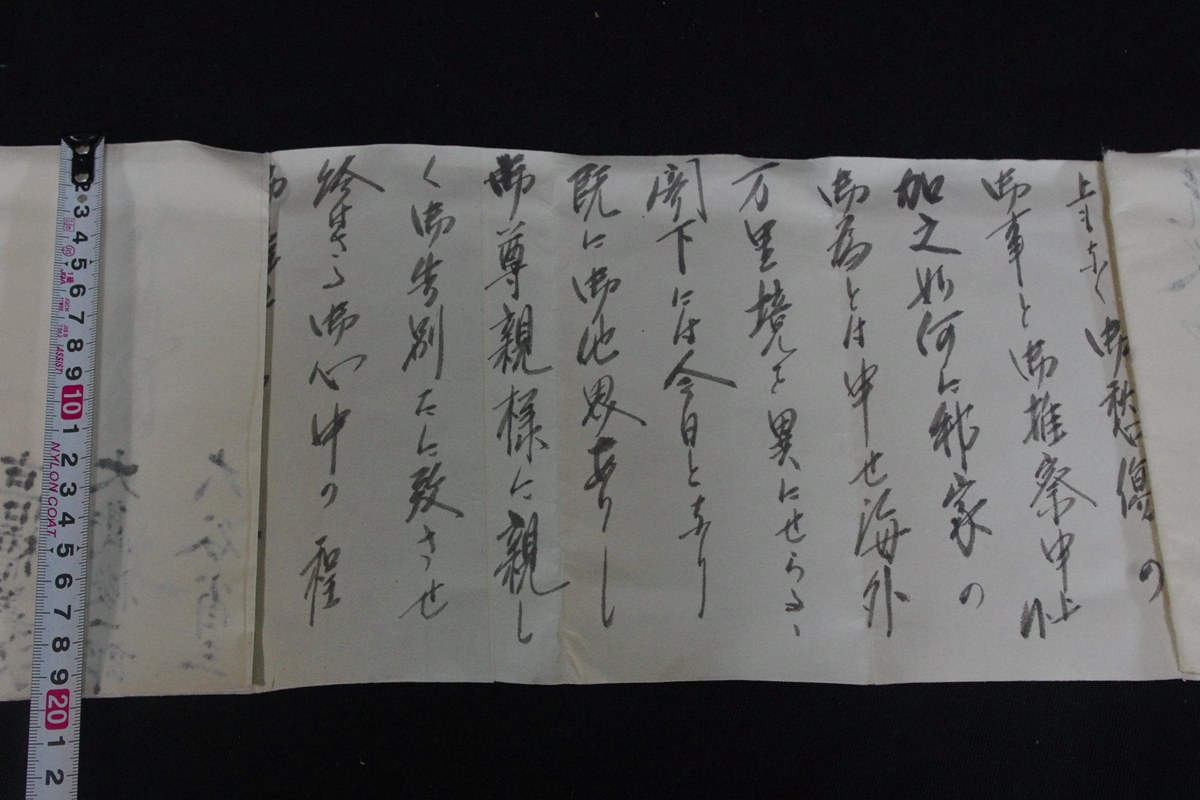 上もなく御愁傷の
御事と御推察申上候
加之如何に邦家の
御為とは申せ海外
万里境を異にせらるゝ
閣下には今日となり
既に御他界ありし
御尊親様に親し
く御告別だに致させ
給はざる御心中の程
2 3 4 5 6 7 8 9 10 1 2 3 4 5 6 7 8 9 20 1 2
NYLON COAT